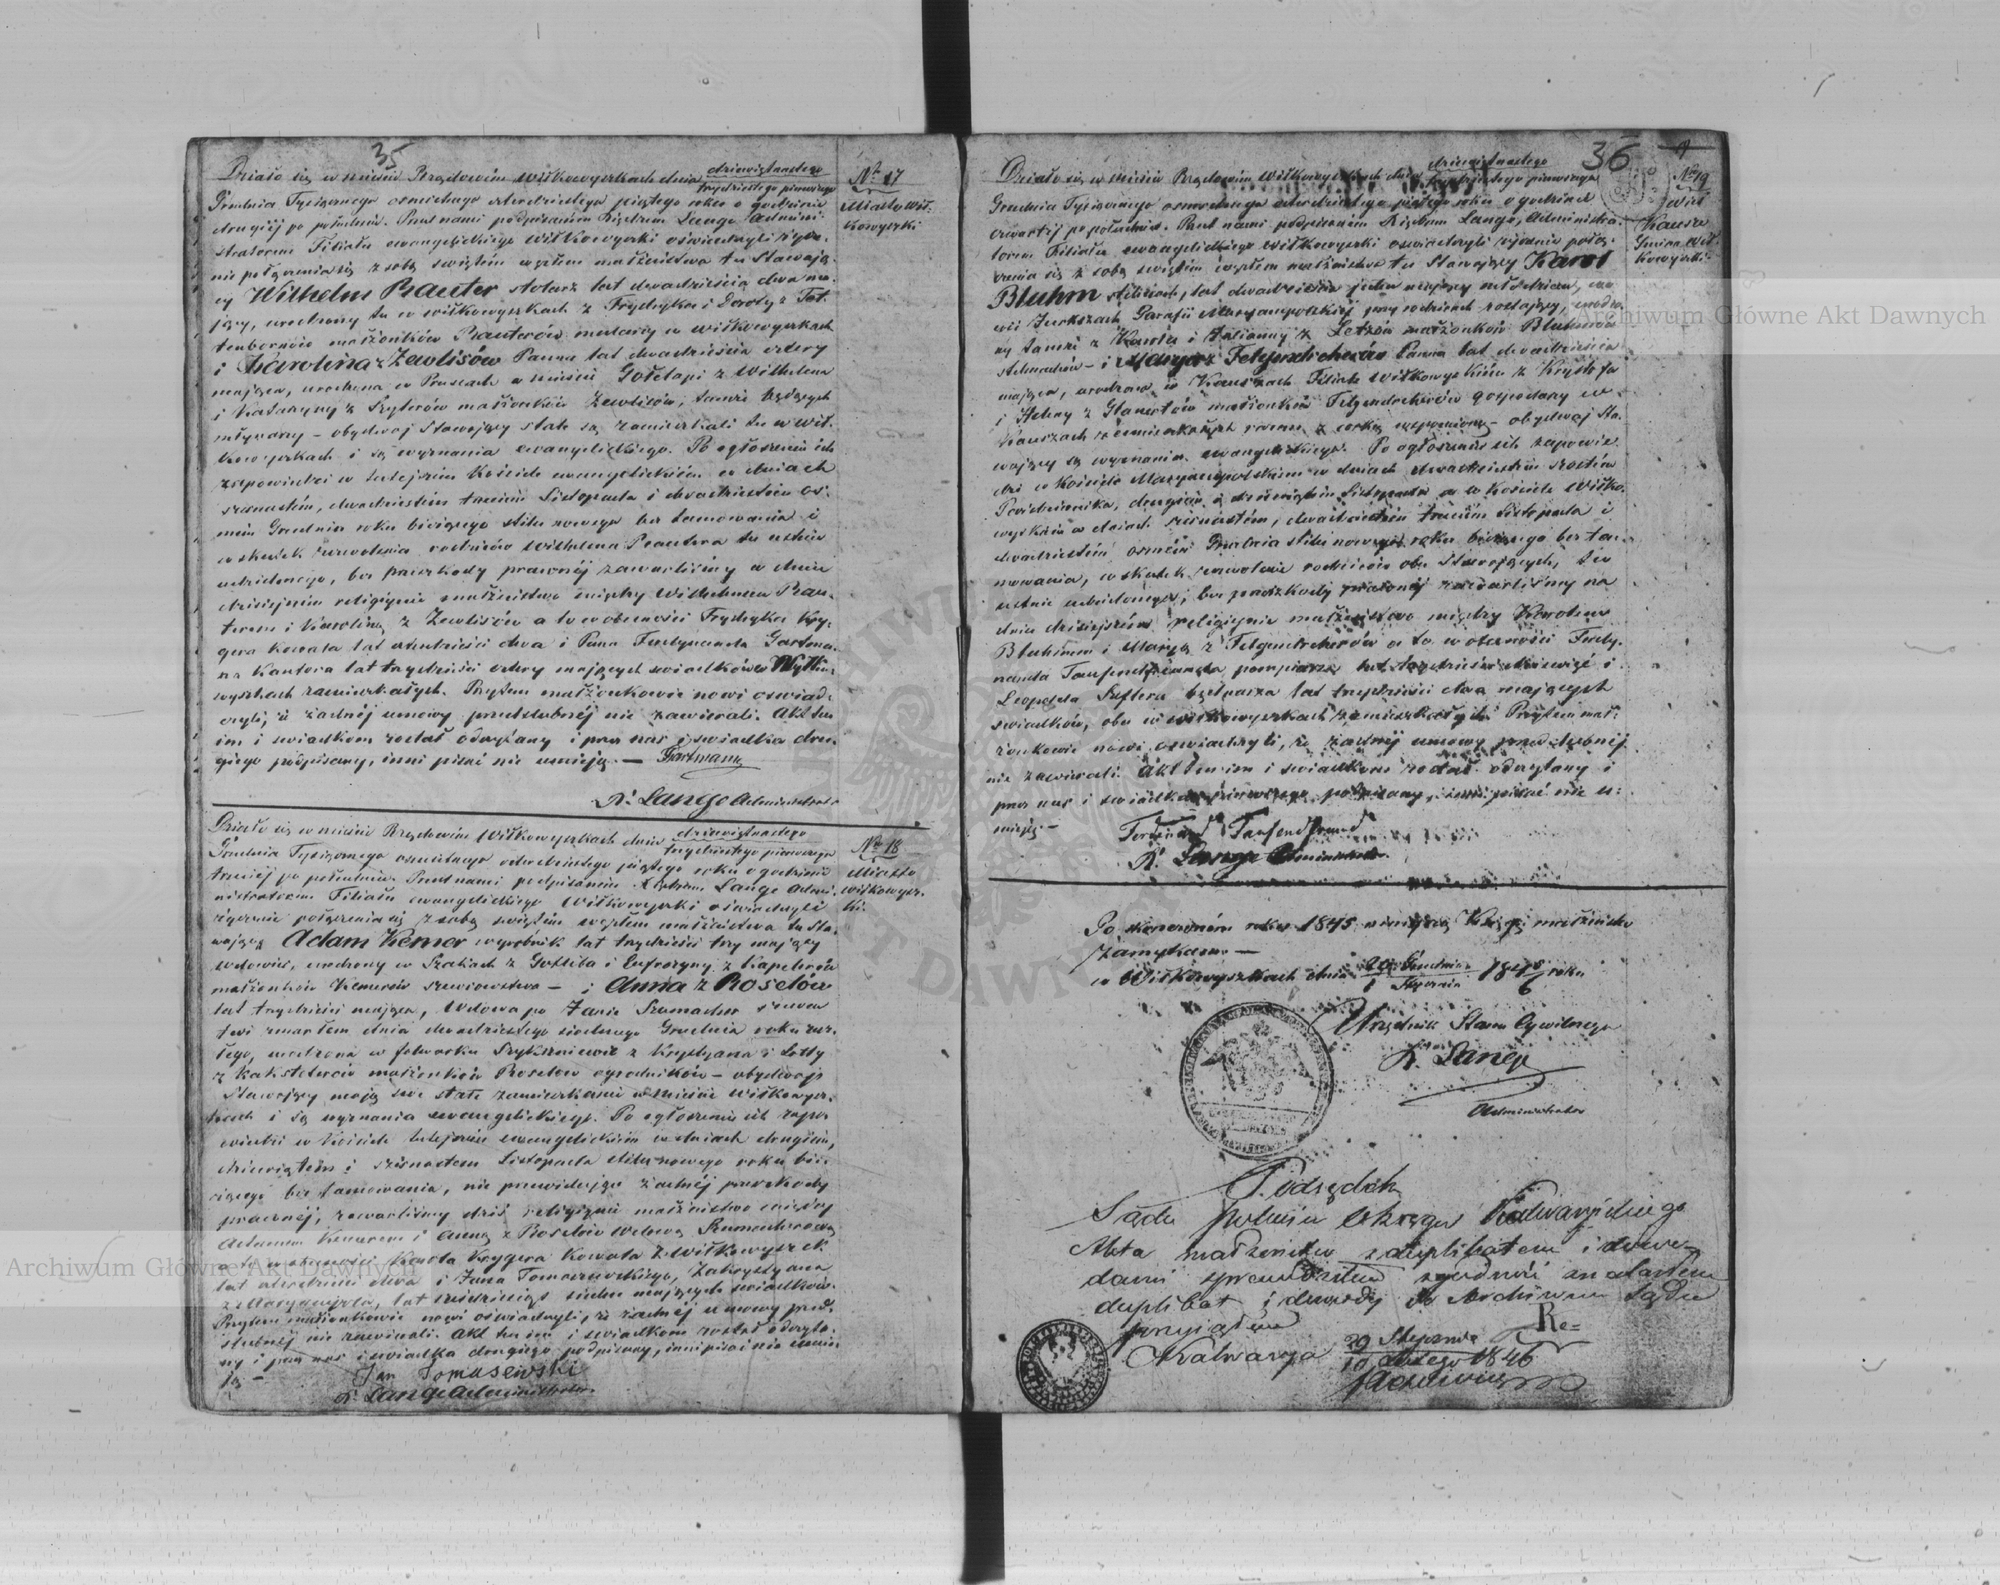 35
Działo się w mieście Rządowém Wiłkowyszkach dnia dziewiętnastego
trzydziestego pierwszego
Grudnia Tysiącznego osmsetnego czterdziestego piątego roku o godzinie
drugiéj po południu. Przed nami podpisanym Xiędzem Lange Admini-
stratorem Filiału ewangelickiego Wiłkowyszki oświadczyli życze-
nie połączenia się z sobą świętym węzłem małżeństwa tu Stawają-
cy Wilhelm Rauter stolarz lat dwadzieścia dwa ma-
jący, urodzony tu w Wiłkowyszkach z Frydryka i Doroty z
małżonków Rauterów w Wiłkowyszkach
i Karolina z Zewlisów Panna lat dwadzieścia cztery
mająca, urodzona w Prusach w mieście Gołdapi z Wilhelma
i Katarzyny z małżonków Zewlisów,
obydwoj Stawający stale są zamieszkali tu w Wił-
kowyszkach i są wyznania ewangelickiego. Po ogłoszeniu ich
zapowiedzi w tutejszém Kościele ewangelickim w dniach
szesnastém, dwudziestém trzecim Listopada i dwudziestém ós-
mém Grudnia roku bieżącego stilu nowego bez tamowania i
w skutek zezwolenia rodziców Wilhelma Rautera tu ustnie
udzielonego, bez przeszkody prawnéj zawarliśmy w dniu
dzisiejszém religijnie małżeństwo między Wilhelmem Rau-
terem i Karoliną z Zewlisów a to w obecności Frydryka Kry-
gera Kowala lat czterdzieści dwa i Pana Ferdynanda Gartma-
na Kantora lat trzydzieści cztery mających świadków w Wyłko-
wyszkach zamieszkałych. Przytem małżonkowie nowi oświad-
czyli, iż żadnéj umowy przedślubnéj nie zawierali. Akt ten
im i świadkom został odczytany i przez nas i świadka dru-
giego podpisany, inni pisać nie umieją. — Gartmann
X. Lange Administrator
№ 17
Miasto Wił-
kowyszki
Działo się w mieście Rządowém Wiłkowyszkach dnia dziewiętnastego
trzydziestego pierwszego
Grudnia Tysiącznego osmsetnego czterdziestego piątego roku o godzinie
trzeciéj po południu. Przed nami podpisanym Xiędzem Lange Admi-
nistratorem Filiału ewangelickiego Wiłkowyszki oświadczyli
życzenie połączenia się z sobą świętym węzłem małżeństwa tu Sta-
wający Adam Kemer wyrobnik lat trzydzieści trzy mający
wdowiec, urodzony w Szakach z Gotliba i Eufrozyny z Kapelerów
małżonków Kemerów — i Anna z Roselów
lat trzydzieści mająca, Wdowa po Janie Szumacher
zmarłem dnia dwudziestego siódmego Grudnia roku zesz-
łego, urodzona w folwarku z Krystyana i Lotty
małżonków Roselów ogrodników — obydwoje
Stawający mają swe stałe zamieszkanie w mieście Wiłkowysz-
kach i są wyznania ewangelickiego. Po ogłoszeniu ich zapo-
wiedzi w Kościele tutejszém ewangelickim w dniach drugim,
dziewiątém i szesnastem Listopada stilu nowego roku bie-
żącego bez tamowania, nie przewidując żadnéj przeszkody
prawnéj, zawarliśmy dziś religijnie małżeństwo między
Adamem Kemerem i Anną z Roselów Wdową Szumacherową
a to w obecności Karola Krygera Kowala z Wiłkowyszek
lat czterdzieści dwa i Jana Tomaszewskiego, Zakrystyana
z lat mających świadków.
Przytem małżonkowie nowi oświadczyli, iż żadnéj umowy przed-
ślubnéj nie zawierali. Akt ten im i świadkom został odczyta-
ny i przez nas i świadka drugiego podpisany, inni pisać nie umie-
ją —
Jan Tomasewski
X. Lange Administrator
№ 18
Miasto
Wiłkowysz-
ki.
36
Działo się w mieście Rządowém Wiłkowyszkach dnia dziewiętnastego
trzydziestego pierwszego
Grudnia Tysiącznego osmsetnego czterdziestego piątego roku o godzinie
czwartéj po południu. Przed nami podpisanym Xiędzem Lange, Administra-
torem Filiału ewangelickiego Wiłkowyszki oświadczyli życzenie połą-
czenia się z sobą świętym węzłem małżeństwa tu Stawający Karol
Bluhm stelmach, lat dwadzieścia jeden mający młodzian, we
wsi Jurkszach Parafii Maryampolskiéj przy rodzicach zostający, urodzo-
ny tamże z Karola i Julianny z małżonków Bluhmów
stelmachów — i Marya z Felgendreherów Panna lat dwadzieścia
mająca, urodzona w Kauszach Filiału Wiłkowyszkiém z Krystofa
i Heleny z małżonków Felgendreherów gospodarzy w
Kauszach zamieszkałych razem z córką wspomnioną — obydwaj Sta-
wający są wyznania ewangelickiego. Po ogłoszeniu ich zapowie-
dzi w Kościele Maryampolskim w dniach dwudziestém szóstém
Października, drugim i dziewiątém Listopada a w Kościele Wiłko-
wyskim w dniach szesnastém, dwudziestém trzecim Listopada i
dwudziestém ósmém Grudnia stilu nowego roku bieżącego bez ta-
mowania, w skutek zezwolenia rodziców obu Stawających, tu
ustnie udzielonego, bez przeszkody prawnéj zawarliśmy na
dniu dzisiejszém religijnie małżeństwo między Karolem
Bluhmem i Maryą z Felgendreherów a to w obecności Ferdy-
nanda Tausendfreunda, lat trzydzieści dziewięć i
Leopolda lat trzydzieści dwa mających
świadków, obu w Wiłkowyszkach zamieszkałych. Przytem mał-
żonkowie nowi oświadczyli, iż żadnéj umowy przedślubnéj
nie zawierali. Akt ten im i świadkom został odczytany i
przez nas i świadka pierwszego podpisany, inni pisać nie u-
mieją. —
Ferdinand Tausendfreund
X. Lange Administrator.
№ 19
Wieś
Kausze
Gmina Wił-
kowyszki
Po skończoném roku 1845 niniejszą Księgę małżeństw
Zamykam —
w Wiłkowyszkach dnia 20 Grudnia
1 Stycznia 1845/6 roku
Urzędnik Stanu Cywilnego
X. Lange
Administrator
Podsędek
Sądu Pokoju Okręgu Kalwaryjskiego
Akta małżeństw z duplikatem i dowo-
dami sprawdziłem zgodność znalazłem
duplikat i dowody do Archiwum Sądu
przyjąłem
Kalwarya 29 Stycznia
10 Lutego 1846
Archiwum Główne Akt Dawnych
Archiwum Główne Akt Dawnych